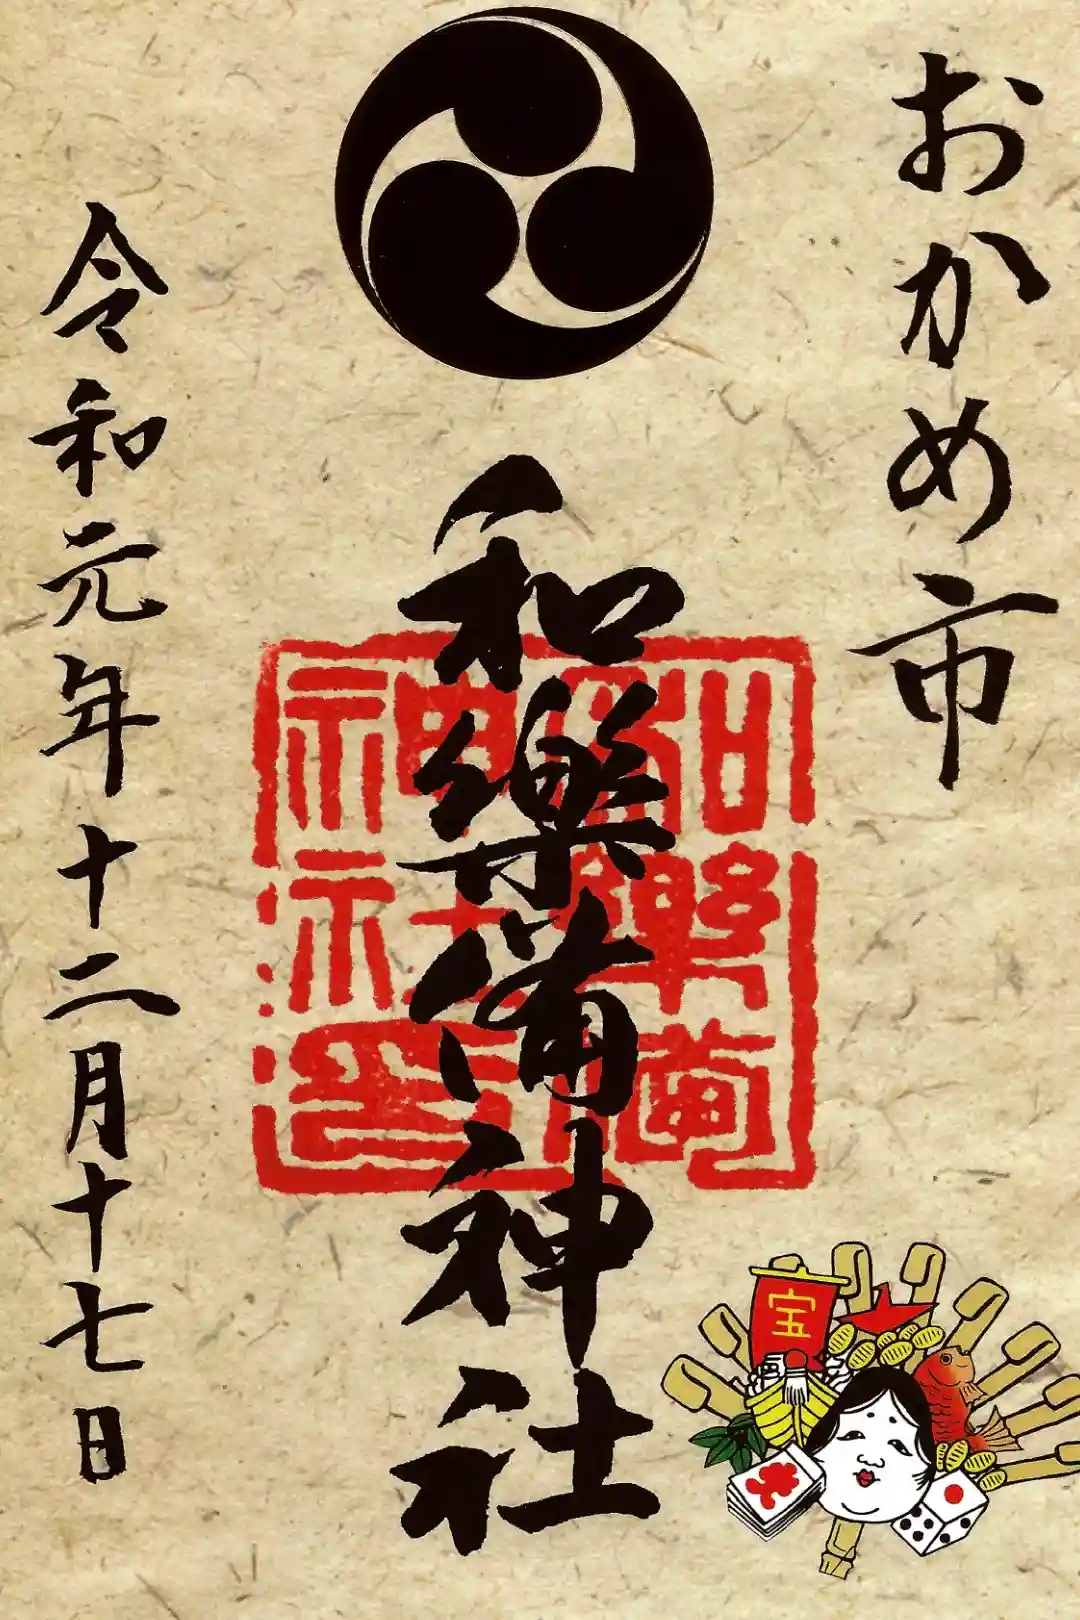 おかめ市
和樂備神社
和樂備神社印
令和元年十二月十七日
宝